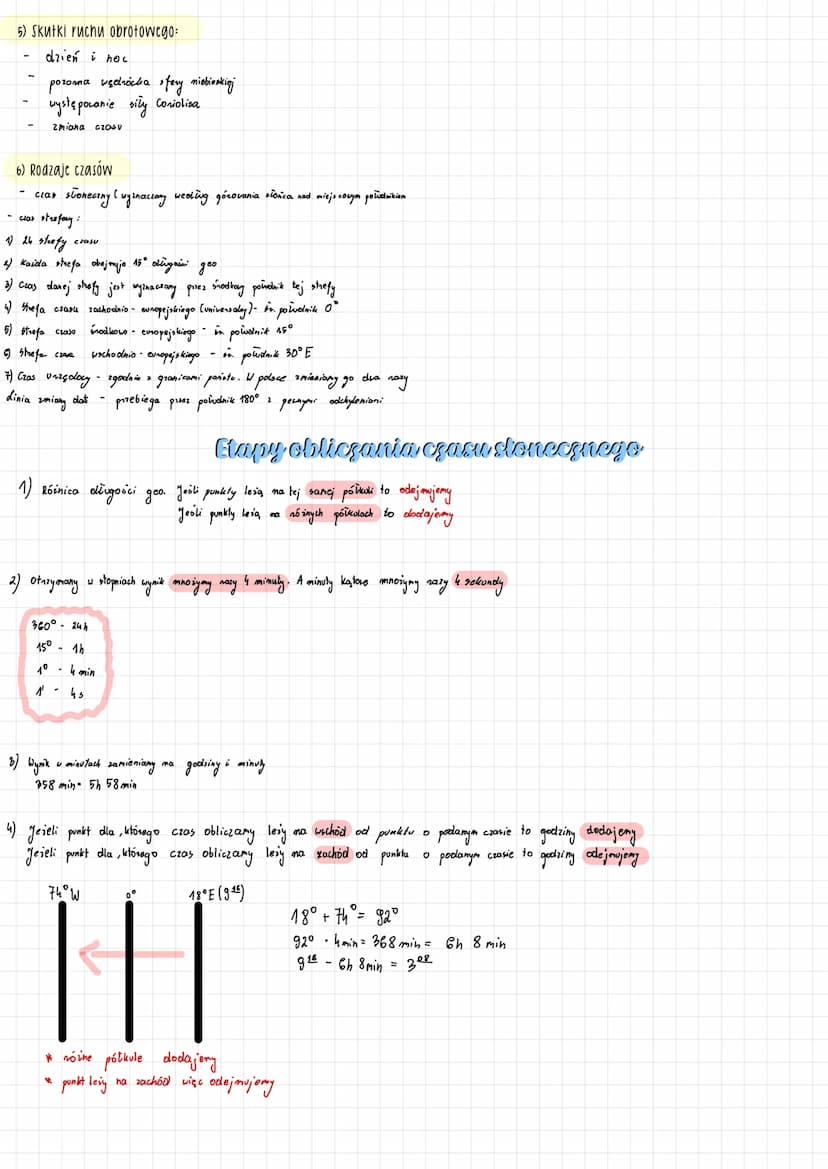 5) Skutki ruchu obrotowego:
- dzień i noc
- pozorna wędrówka sfery niebieskiej
- występowanie siły Coriolisa
- zmiana czasu
6) Rodzaje czasów
- czas słoneczny (wyznaczany według górowania słońca nad miejscowym południkiem
- czas strefowy:
1) 24 strefy czasu
2) Każda strefa obejmuje 15° długości geo
3) Czas danej strefy jest wyznaczany przez środkowy południk tej strefy
4) Strefa czasu zachodnio-europejskiego (uniwersalny) - śr. południk 0°
5) Strefa czasu środkowo-europejskiego - śr. południk 15°
6) Strefa czasu wschodnio-europejskiego - śr. południk 30°E
7) Czas urzędowy - zgodnie z granicami państw. W polsce zmieniamy go dwa razy
Linia zmiany dat - przebiega przez południk 180° z pewnymi odchyleniami
Etapy obliczania czasu słonecznego
1) Różnica długości geo. Jeśli punkty leżą na tej samej półkuli to odejmujemy
Jeśli punkty leżą na różnych półkulach to dodajemy
2) Otrzymany w stopniach wynik mnożymy razy 4 minuty. A minuty kątowe mnożymy razy 4 sekundy
360° - 24h
15° - 1h
1° - 4 min
1' - 4s
3) Wynik w minutach zamieniamy na godziny i minuty
358 min = 5h 58 min
4) Jeżeli punkt dla, którego czas obliczamy leży na wschód od punktu o podanym czasie to godziny dodajemy
Jeżeli punkt dla, którego czas obliczamy leży na zachód od punktu o podanym czasie to godziny odejmujemy
74°W 0° 18°E (9¹⁶)
18° + 74° = 92°
92° · 4min = 368 min = 6h 8 min
9¹⁶ - 6h 8min = 3⁰⁸
* różne półkule dodajemy
* punkt leży na zachód więc odejmujemy